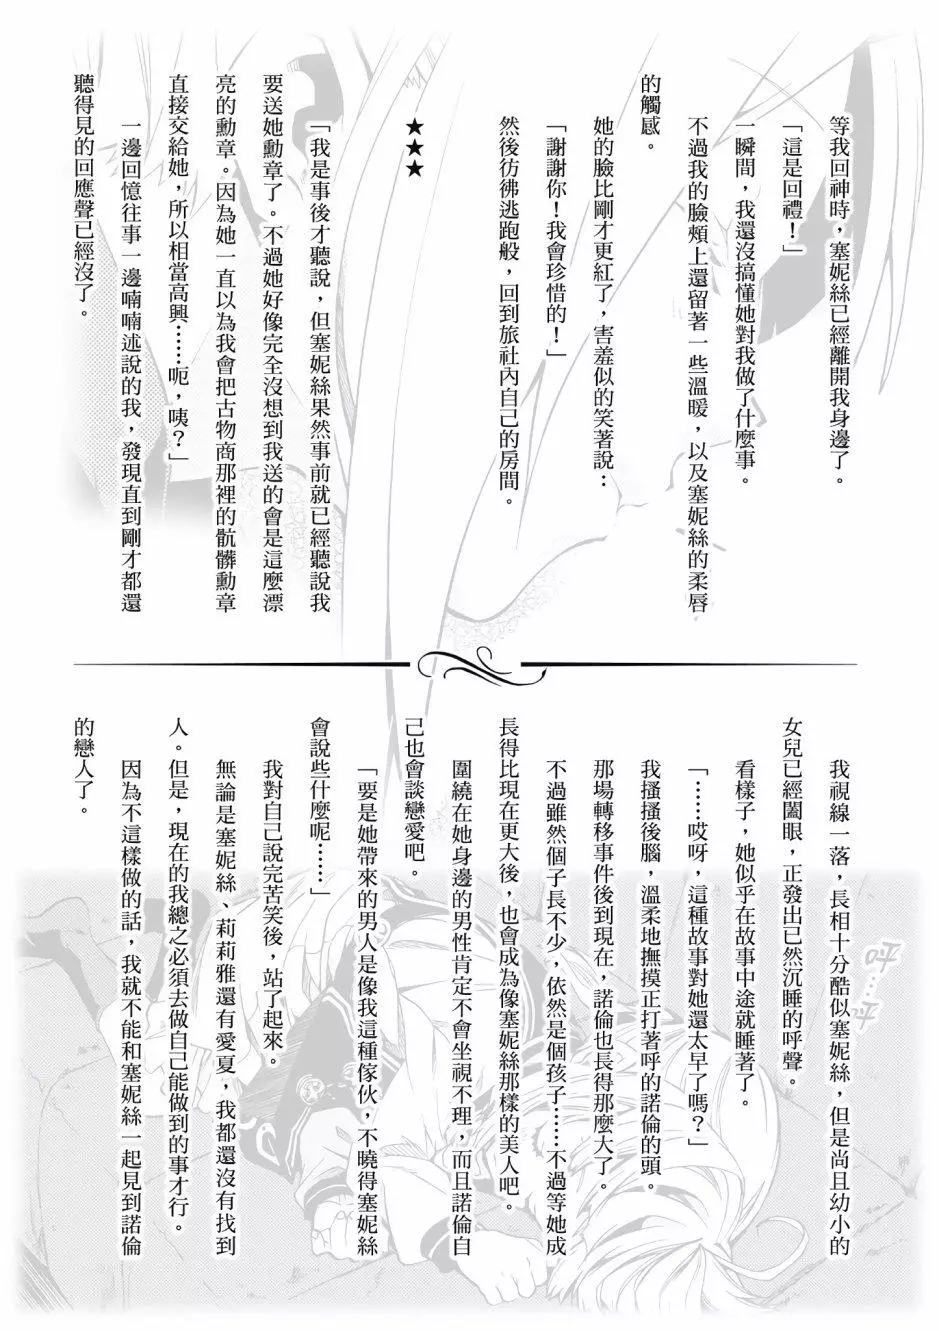 等我回神時，塞妮絲已經離開我身邊了。
「這是回禮！」
一瞬間，我還沒搞懂她對我做了什麼事。
不過我的臉頰上還留著一些溫暖，以及塞妮絲的柔唇
的觸感。
她的臉比剛才更紅了，害羞似的笑著說：
「謝謝你！我會珍惜的！」
然後彷彿逃跑般，回到旅社內自己的房間。
★★★
「我是事後才聽說，但塞妮絲果然事前就已經聽說我
要送她勳章了。不過她好像完全沒想到我送的會是這麼漂
亮的勳章。因為她一直以為我會把古物商那裡的骯髒勳章
直接交給她，所以相當高興……呃，咦？」
一邊回憶往事一邊喃喃述說的我，發現直到剛才都還
聽得見的回應聲已經沒了。
我視線一落，長相十分酷似塞妮絲，但是尚且幼小的
女兒已經闔眼，正發出已然沉睡的呼聲。
看樣子，她似乎在故事中途就睡著了。
「……哎呀，這種故事對她還太早了嗎？」
我搔搔後腦，溫柔地撫摸正打著呼的諾倫的頭。
那場轉移事件後到現在，諾倫也長得那麼大了。
不過雖然個子長不少，依然是個孩子……不過等她成
長得比現在更大後，也會成為像塞妮絲那樣的美人吧。
圍繞在她身邊的男性肯定不會坐視不理，而且諾倫自
己也會談戀愛吧。
「要是她帶來的男人是像我這種傢伙，不曉得塞妮絲
會說些什麼呢……」
我對自己說完苦笑後，站了起來。
無論是塞妮絲、莉莉雅還有愛夏，我都還沒有找到
人。但是，現在的我總之必須去做自己能做到的事才行。
因為不這樣做的話，我就不能和塞妮絲一起見到諾倫
的戀人了。
呼…呼